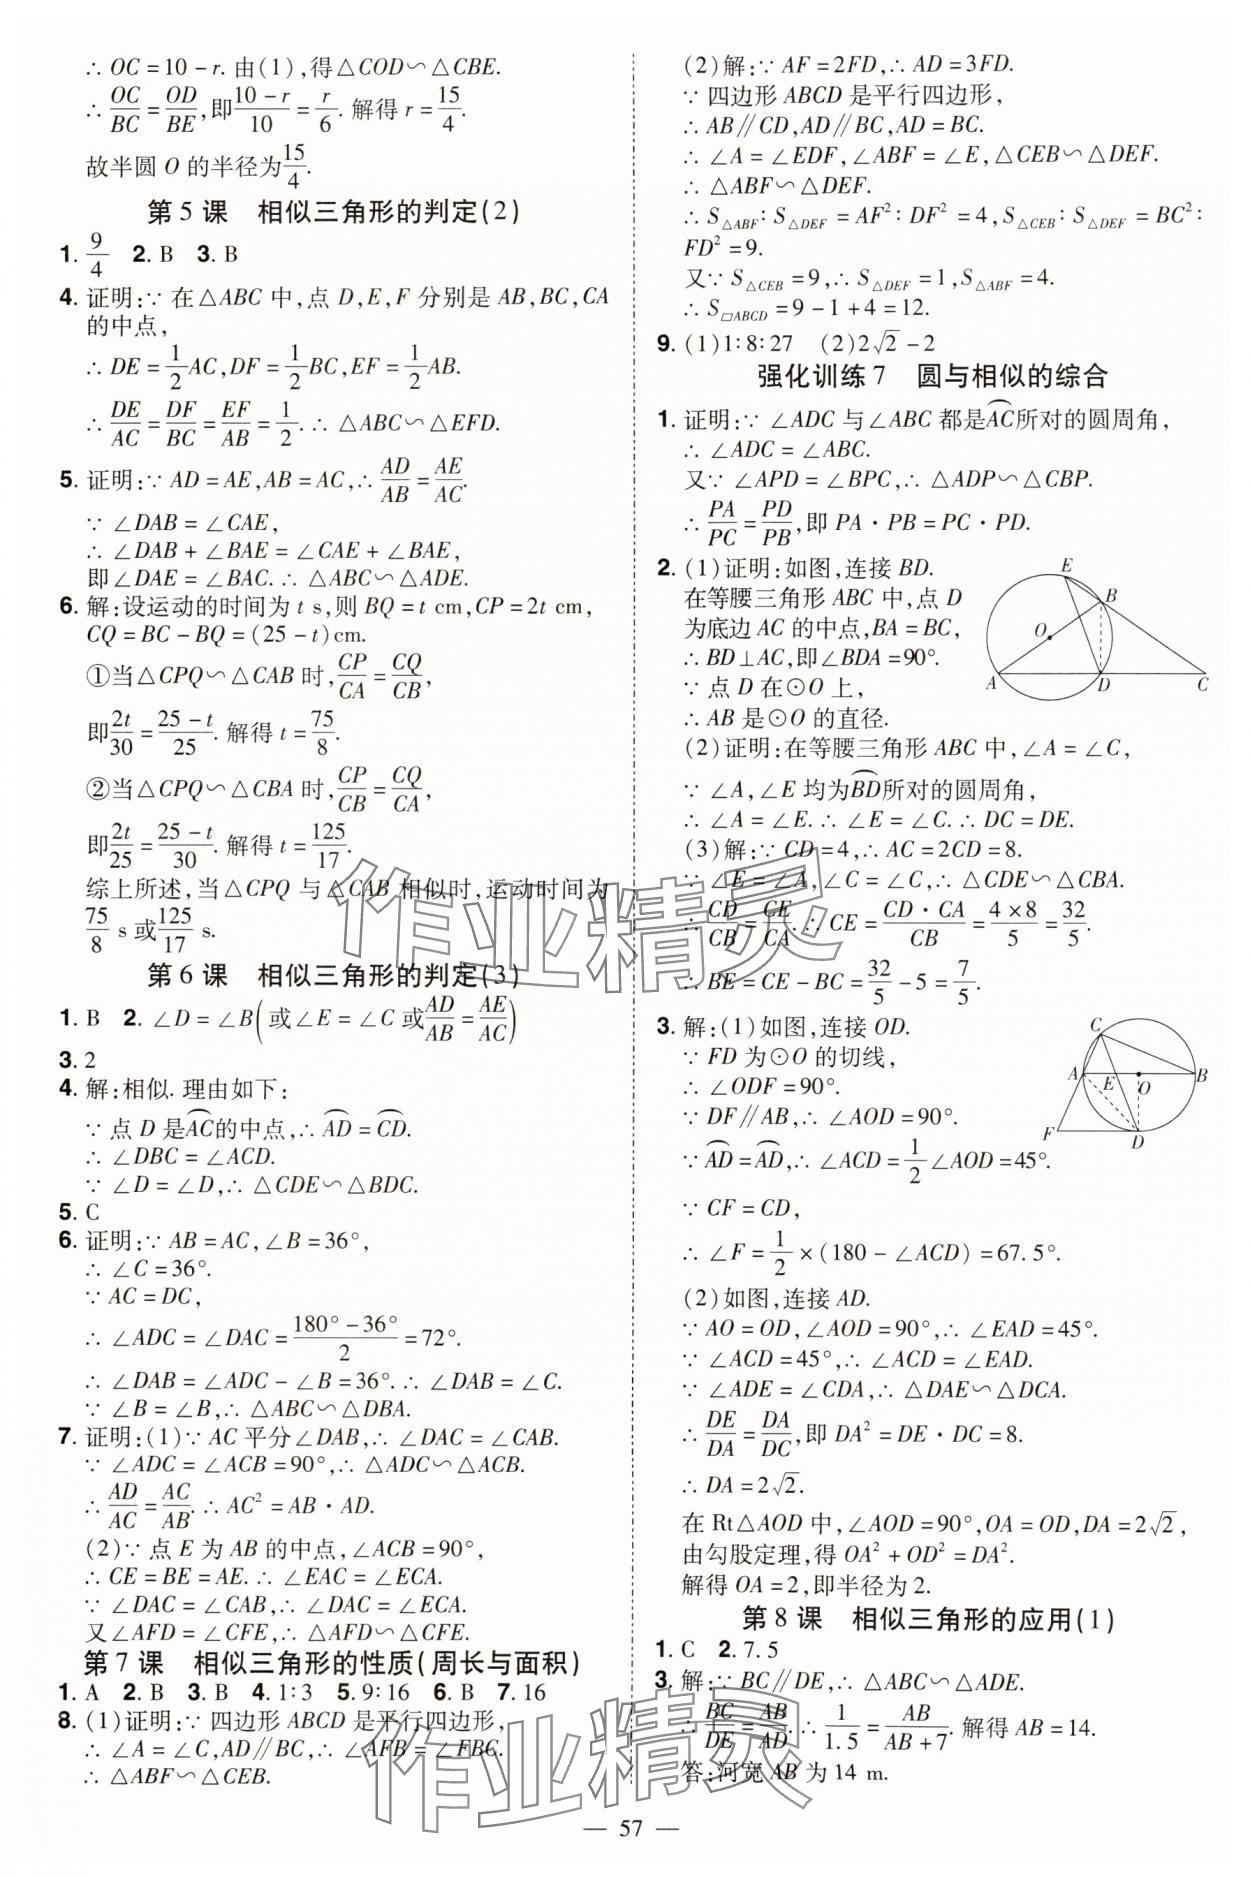 ∴ OC=10-r. 由(1),得△COD∽△CBE.
∴ OC/BC=OD/BE,即(10-r)/10=r/6. 解得 r=15/4.
故半圆 O 的半径为15/4.
第5课 相似三角形的判定(2)
1. 9/4 2. B 3. B
4. 证明:∵ 在△ABC 中,点 D,E,F 分别是 AB,BC,CA
的中点,
∴ DE=1/2AC,DF=1/2BC,EF=1/2AB.
∴ DE/AC=DF/BC=EF/AB=1/2. ∴ △ABC∽△EFD.
5. 证明:∵ AD=AE,AB=AC,∴ AD/AB=AE/AC.
∵ ∠DAB=∠CAE,
∴ ∠DAB+∠BAE=∠CAE+∠BAE,
即∠DAE=∠BAC. ∴ △ABC∽△ADE.
6. 解:设运动的时间为 t s,则 BQ=t cm,CP=2t cm,
CQ=BC-BQ=(25-t)cm.
①当△CPQ∽△CAB 时,CP/CA=CQ/CB,
即2t/30=(25-t)/25. 解得 t=75/8.
②当△CPQ∽△CBA 时,CP/CB=CQ/CA,
即2t/25=(25-t)/30. 解得 t=125/17.
综上所述,当△CPQ 与△CAB 相似时,运动时间为
75/8 s 或125/17 s.
第6课 相似三角形的判定(3)
1. B 2. ∠D=∠B(或∠E=∠C 或AD/AB=AE/AC)
3. 2
4. 解:相似. 理由如下:
∵ 点 D 是⌒AC的中点,∴ ⌒AD=⌒CD.
∴ ∠DBC=∠ACD.
∵ ∠D=∠D,∴ △CDE∽△BDC.
5. C
6. 证明:∵ AB=AC,∠B=36°,
∴ ∠C=36°.
∵ AC=DC,
∴ ∠ADC=∠DAC=(180°-36°)/2=72°.
∴ ∠DAB=∠ADC-∠B=36°. ∴ ∠DAB=∠C.
∵ ∠B=∠B,∴ △ABC∽△DBA.
7. 证明:(1)∵ AC 平分∠DAB,∴ ∠DAC=∠CAB.
∵ ∠ADC=∠ACB=90°,∴ △ADC∽△ACB.
∴ AD/AC=AC/AB. ∴ AC²=AB·AD.
(2)∵ 点 E 为 AB 的中点,∠ACB=90°,
∴ CE=BE=AE. ∴ ∠EAC=∠ECA.
∵ ∠DAC=∠CAB,∴ ∠DAC=∠ECA.
又∠AFD=∠CFE,∴ △AFD∽△CFE.
第7课 相似三角形的性质(周长与面积)
1. A 2. B 3. B 4. 1∶3 5. 9∶16 6. B 7. 16
8. (1)证明:∵ 四边形 ABCD 是平行四边形,
∴ ∠A=∠C,AD∥BC,∴ ∠AFB=∠FBC.
∴ △ABF∽△CEB.
(2)解:∵ AF=2FD,∴ AD=3FD.
∵ 四边形 ABCD 是平行四边形,
∴ AB∥CD,AD∥BC,AD=BC.
∴ ∠A=∠EDF,∠ABF=∠E,△CEB∽△DEF.
∴ △ABF∽△DEF.
∴ S△ABF∶S△DEF=AF²∶DF²=4,S△CEB∶S△DEF=BC²∶
FD²=9.
又∵ S△CEB=9,∴ S△DEF=1,S△ABF=4.
∴ S▱ABCD=9-1+4=12.
9. (1)1∶8∶27 (2)2√2-2
强化训练7 圆与相似的综合
1. 证明:∵ ∠ADC 与∠ABC 都是⌒AC所对的圆周角,
∴ ∠ADC=∠ABC.
又∵ ∠APD=∠BPC,∴ △ADP∽△CBP.
∴ PA/PC=PD/PB,即 PA·PB=PC·PD.
2. (1)证明:如图,连接 BD.
在等腰三角形 ABC 中,点 D
为底边 AC 的中点,BA=BC,
∴ BD⊥AC,即∠BDA=90°.
∵ 点 D 在⊙O 上,
∴ AB 是⊙O 的直径.
E
B
O
A
D
C
(2)证明:在等腰三角形 ABC 中,∠A=∠C,
∵ ∠A,∠E 均为⌒BD所对的圆周角,
∴ ∠A=∠E. ∴ ∠E=∠C. ∴ DC=DE.
(3)解:∵ CD=4,∴ AC=2CD=8.
∵ ∠E=∠A,∠C=∠C,∴ △CDE∽△CBA.
∴ CD/CB=CE/CA. ∴ CE=CD·CA/CB=4×8/5=32/5.
∴ BE=CE-BC=32/5-5=7/5.
3. 解:(1)如图,连接 OD.
∵ FD 为⊙O 的切线,
∴ ∠ODF=90°.
∵ DF∥AB,∴ ∠AOD=90°.
C
A
E
O
B
F
D
∵ ⌒AD=⌒AD,∴ ∠ACD=1/2∠AOD=45°.
∵ CF=CD,
∴ ∠F=1/2×(180-∠ACD)=67.5°.
(2)如图,连接 AD.
∵ AO=OD,∠AOD=90°,∴ ∠EAD=45°.
∵ ∠ACD=45°,∴ ∠ACD=∠EAD.
∵ ∠ADE=∠CDA,∴ △DAE∽△DCA.
∴ DE/DA=DA/DC,即 DA²=DE·DC=8.
∴ DA=2√2.
在 Rt△AOD 中,∠AOD=90°,OA=OD,DA=2√2,
由勾股定理,得 OA²+OD²=DA².
解得 OA=2,即半径为 2.
第8课 相似三角形的应用(1)
1. C 2. 7.5
3. 解:∵ BC∥DE,∴ △ABC∽△ADE.
∴ BC/DE=AB/AD. ∴ 1/1.5=AB/(AB+7). 解得 AB=14.
答:河宽 AB 为 14 m.
— 57 —
作业精灵
作业精灵